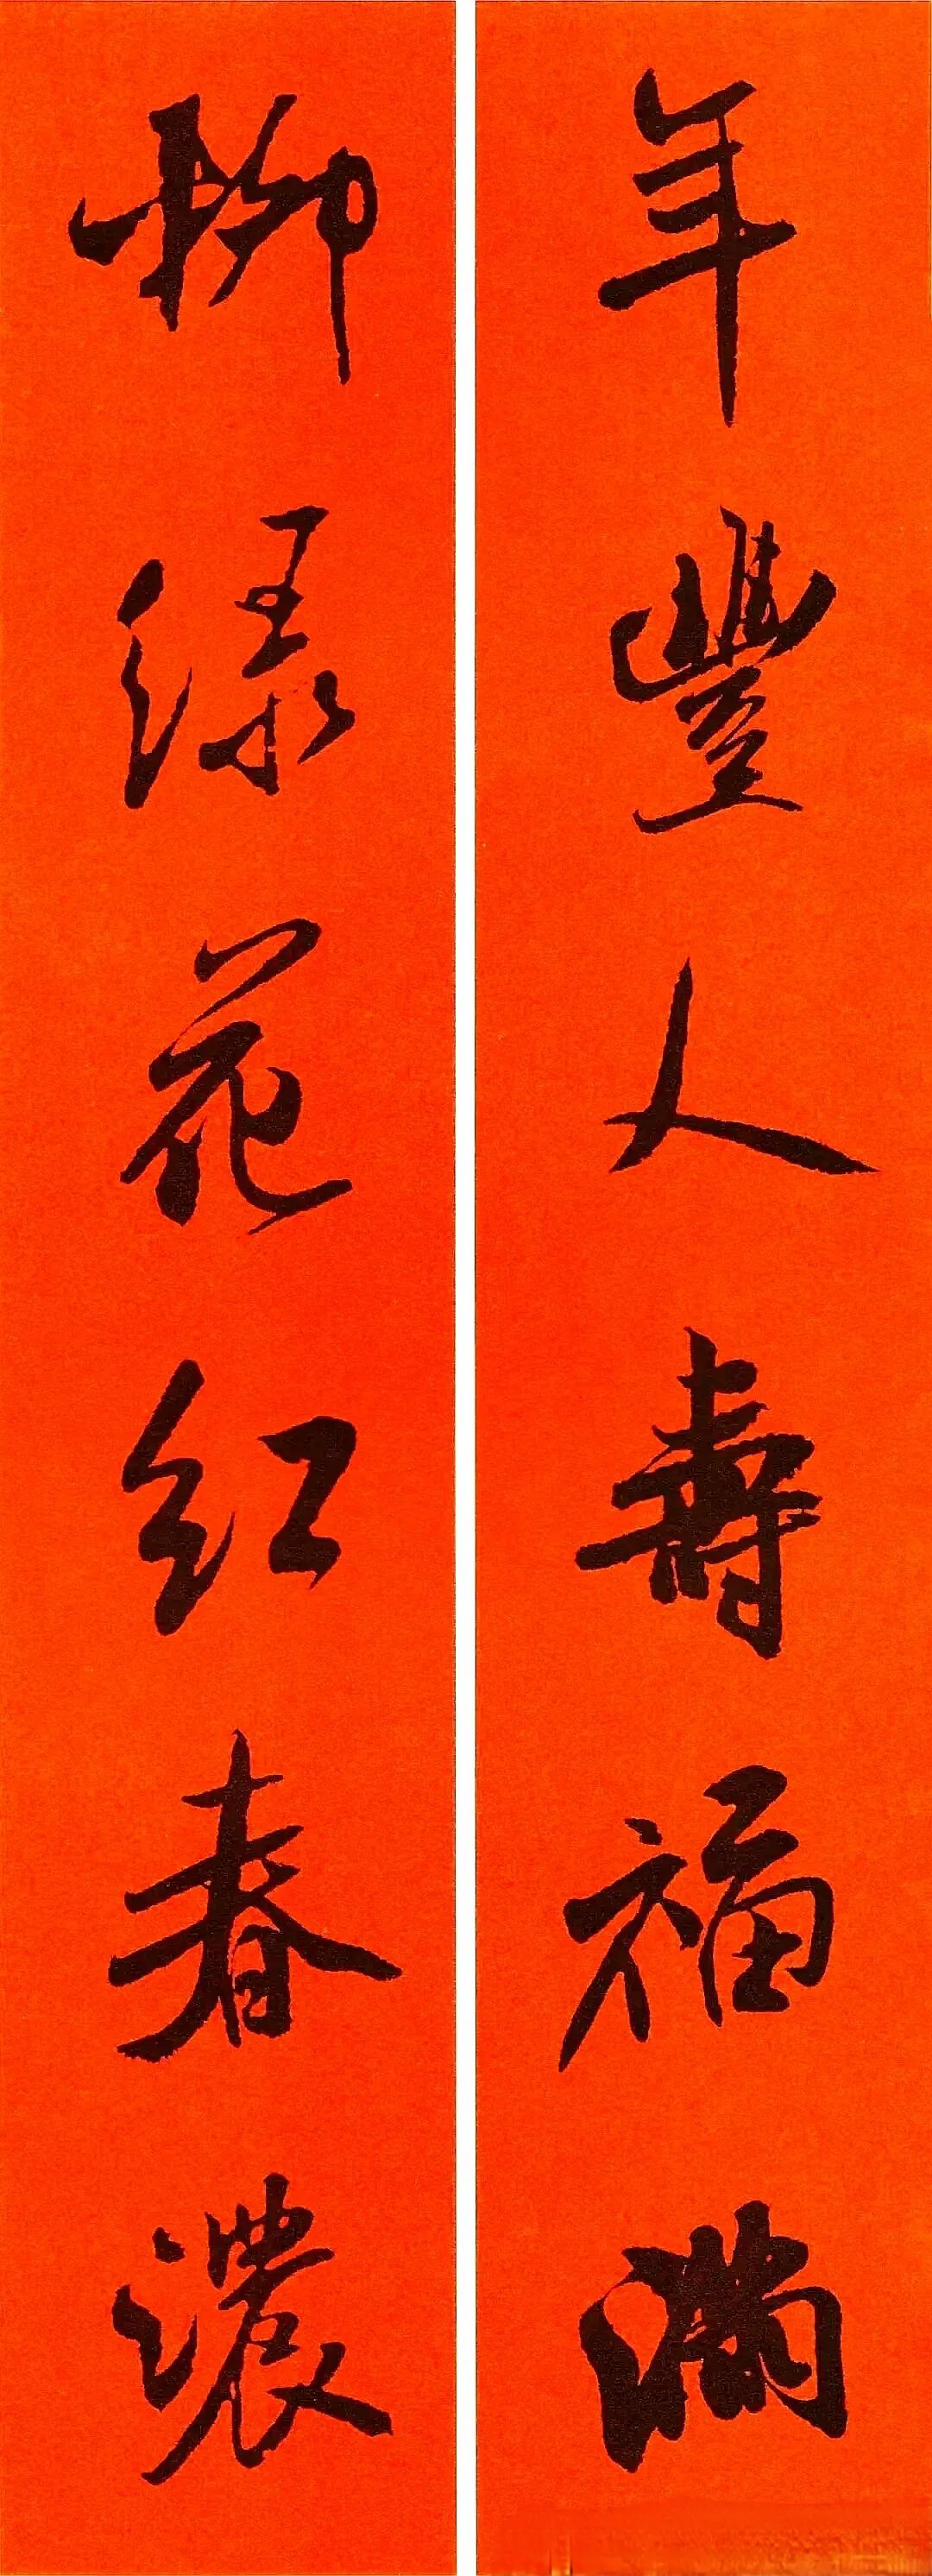 年豐人壽福滿
柳緑花红春濃